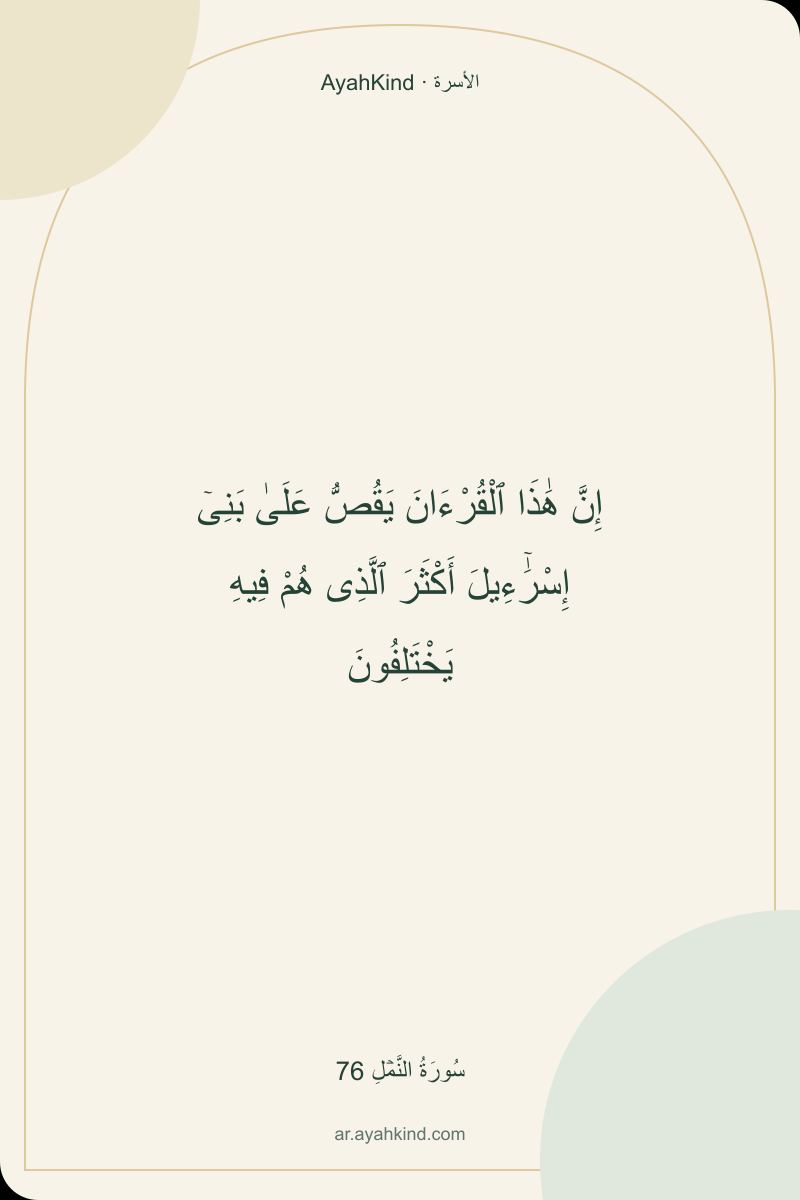 AyahKind · الأسرة
إِنَّ هَٰذَا ٱلْقُرْءَانَ يَقُصُّ عَلَىٰ بَنِىٓ
إِسْرَٰٓءِيلَ أَكْثَرَ ٱلَّذِى هُمْ فِيهِ
يَخْتَلِفُونَ
سُورَةُ النَّمۡلِ 76
ar.ayahkind.com